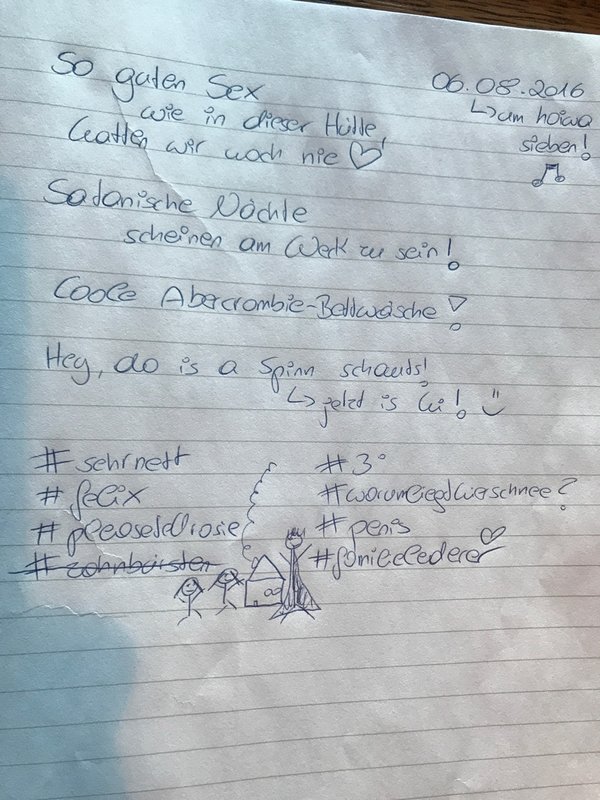 So guten Sex
wie in dieser Hütte
hatten wir noch nie!
06.08.2016
um hoiwa
sieben!
Satanische Mächte
scheinen am Werk zu sein!
Coole Abercrombie-Bettwäsche!
Hey, do is a Spinn schauts!
jetzt is hi!
#sehrnett
#felix
#zahnbürsten
#3°
#warumliegthierschnee?
#penis
#familieederer